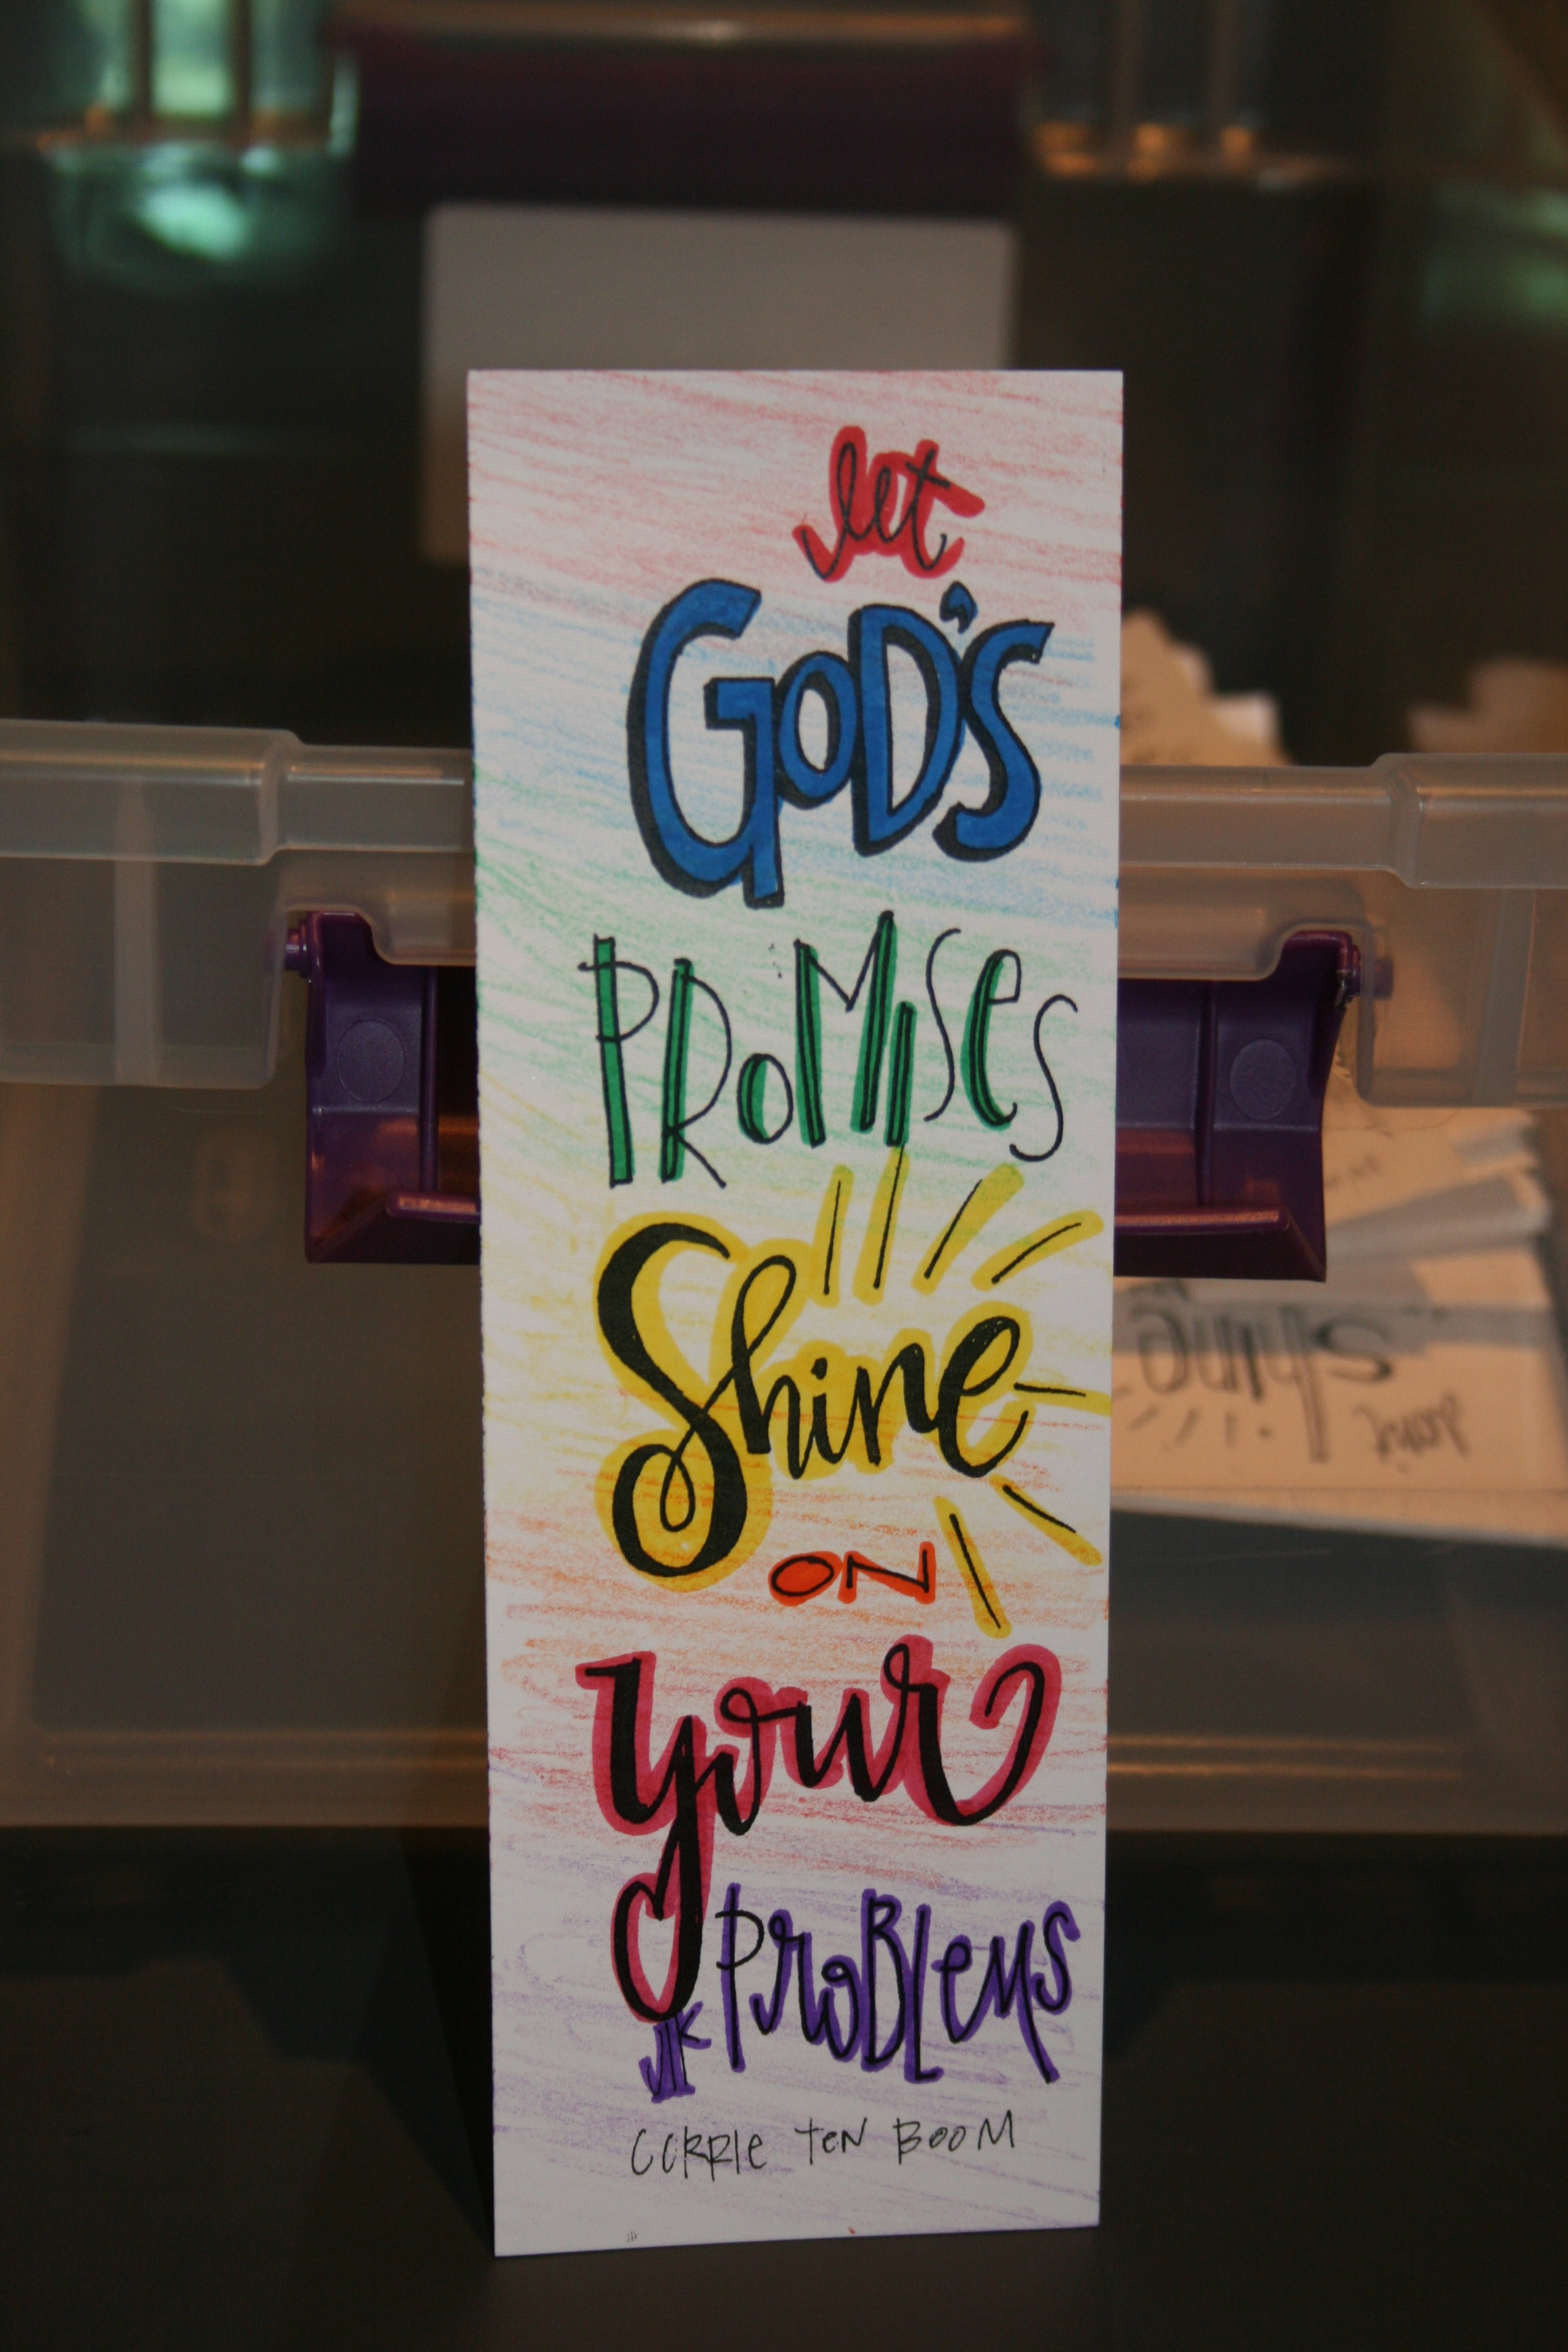 let
GOD'S
PROMISES
Shine
ON
your
PROBLEMS
JK
CORRIE TEN BOOM
shine